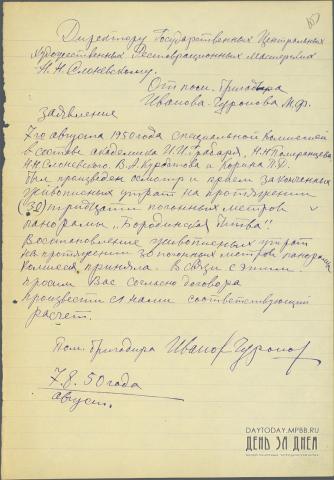 Директору Государственных Центральных
Художественных Реставрационных Мастерских
Н.Н. Слоневскому.
От пом. бригадира
Иванова-Чуронова М.Ф.
Заявления
7го августа 1950 года специальной комиссией
в составе академика И.И. Грабаря, Н.Н. Померанцева
Н.Н. Слоневского, В.А. и
был произведен осмотр и прием законченных
живописных утрат на протяжении
(30) тридцати погонных метров
панорамы, "Бородинская битва".
Восстановление живописных утрат
на протяжении 30 погонных метров панорамы
комисся, приняла. В связи с этим
просим Вас согласно договора
произвести с нами соответствующий
расчет.
Пом. бригадира Иванов Чуронов
7.8.50 года
август.
DAYTODAY.MPBB.RU
ДЕНЬ ЗА ДНЕМ